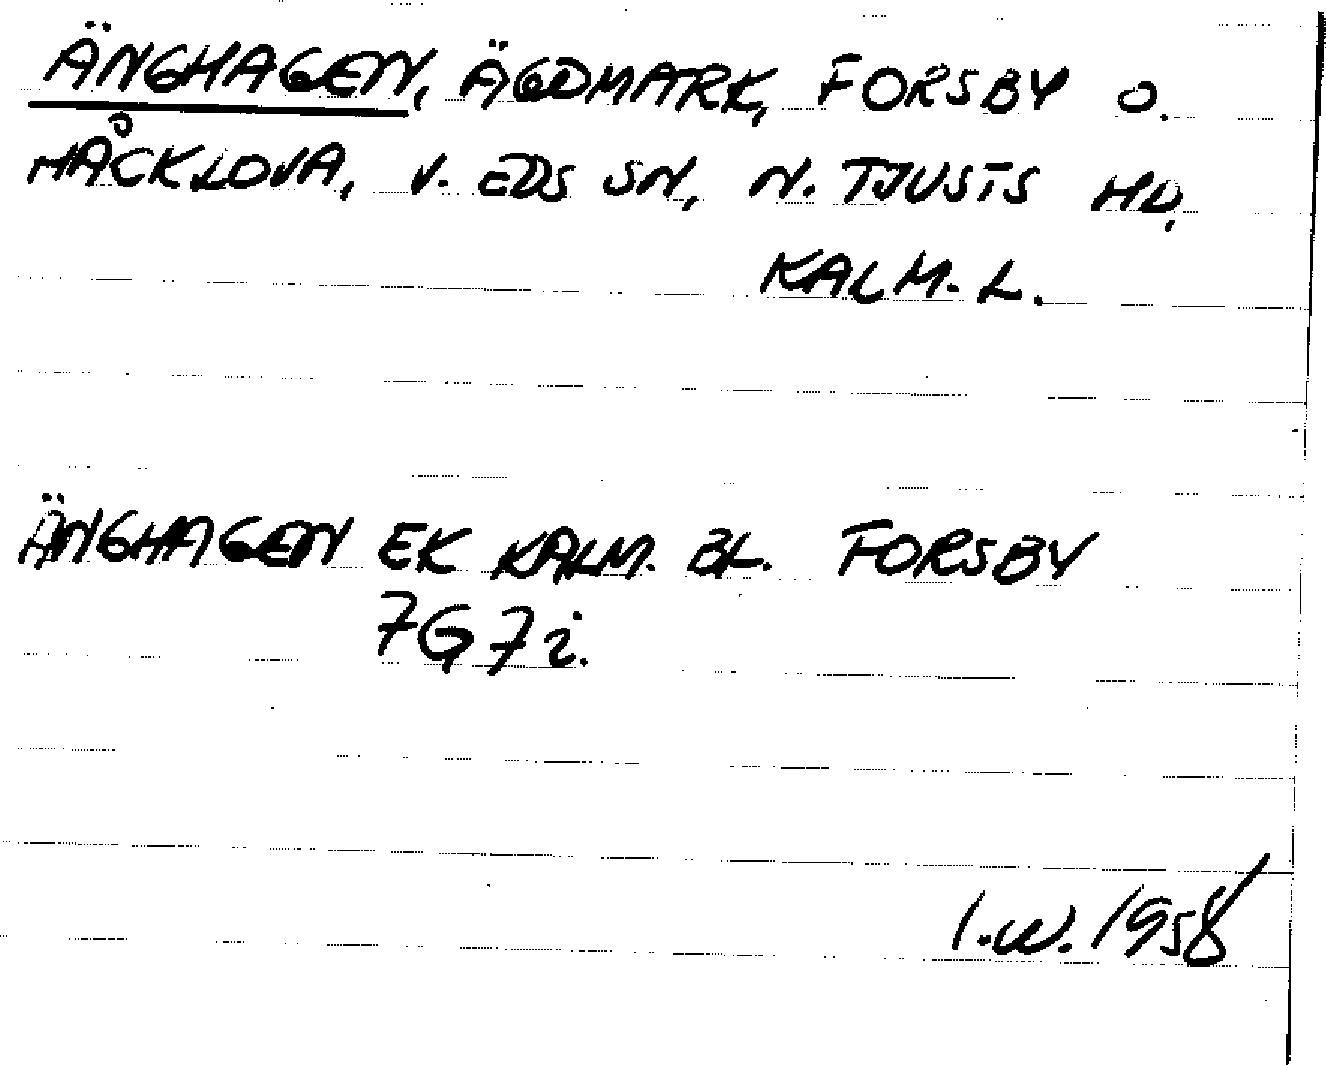 ÄNGHAGEN, ÄGOMARK, FORSBY O.
HÅCKLOVA, V. EDS SN, N. TJUSTS HD,
KALM. L.
ÄNGHAGEN EK KALM. BL. FORSBY
7G7i.
I.W. 1958